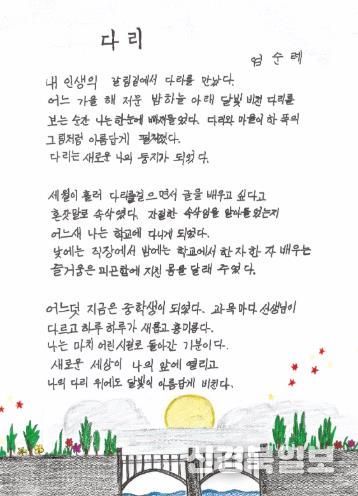 다리
엄순례
내 인생의 갈림길에서 다리를 만났다.
어느 가을 해 저문 밤하늘 아래 달빛 비친 다리를
보는 순간 나는 한눈에 빠져들었다. 다리와 마을이 한 폭의
그림처럼 아름답게 펼쳐졌다.
다리는 새로운 나의 둥지가 되었다.
세월이 흘러 다리를 걸으면서 글을 배우고 싶다고
혼잣말로 속삭였다. 간절한 속삭임을 알아들었는지
어느새 나는 학교에 다니게 되었다.
낮에는 직장에서 밤에는 학교에서 한 자 한 자 배우는
즐거움은 피곤함에 지친 몸을 달래 주었다.
어느덧 지금은 중학생이 되었다. 과목마다 선생님이
다르고 하루 하루가 새롭고 흥미롭다.
나는 마치 어린 시절로 돌아간 기분이다.
새로운 세상이 나의 앞에 열리고
나의 다리 위에도 달빛이 아름답게 비친다.
신경북일보